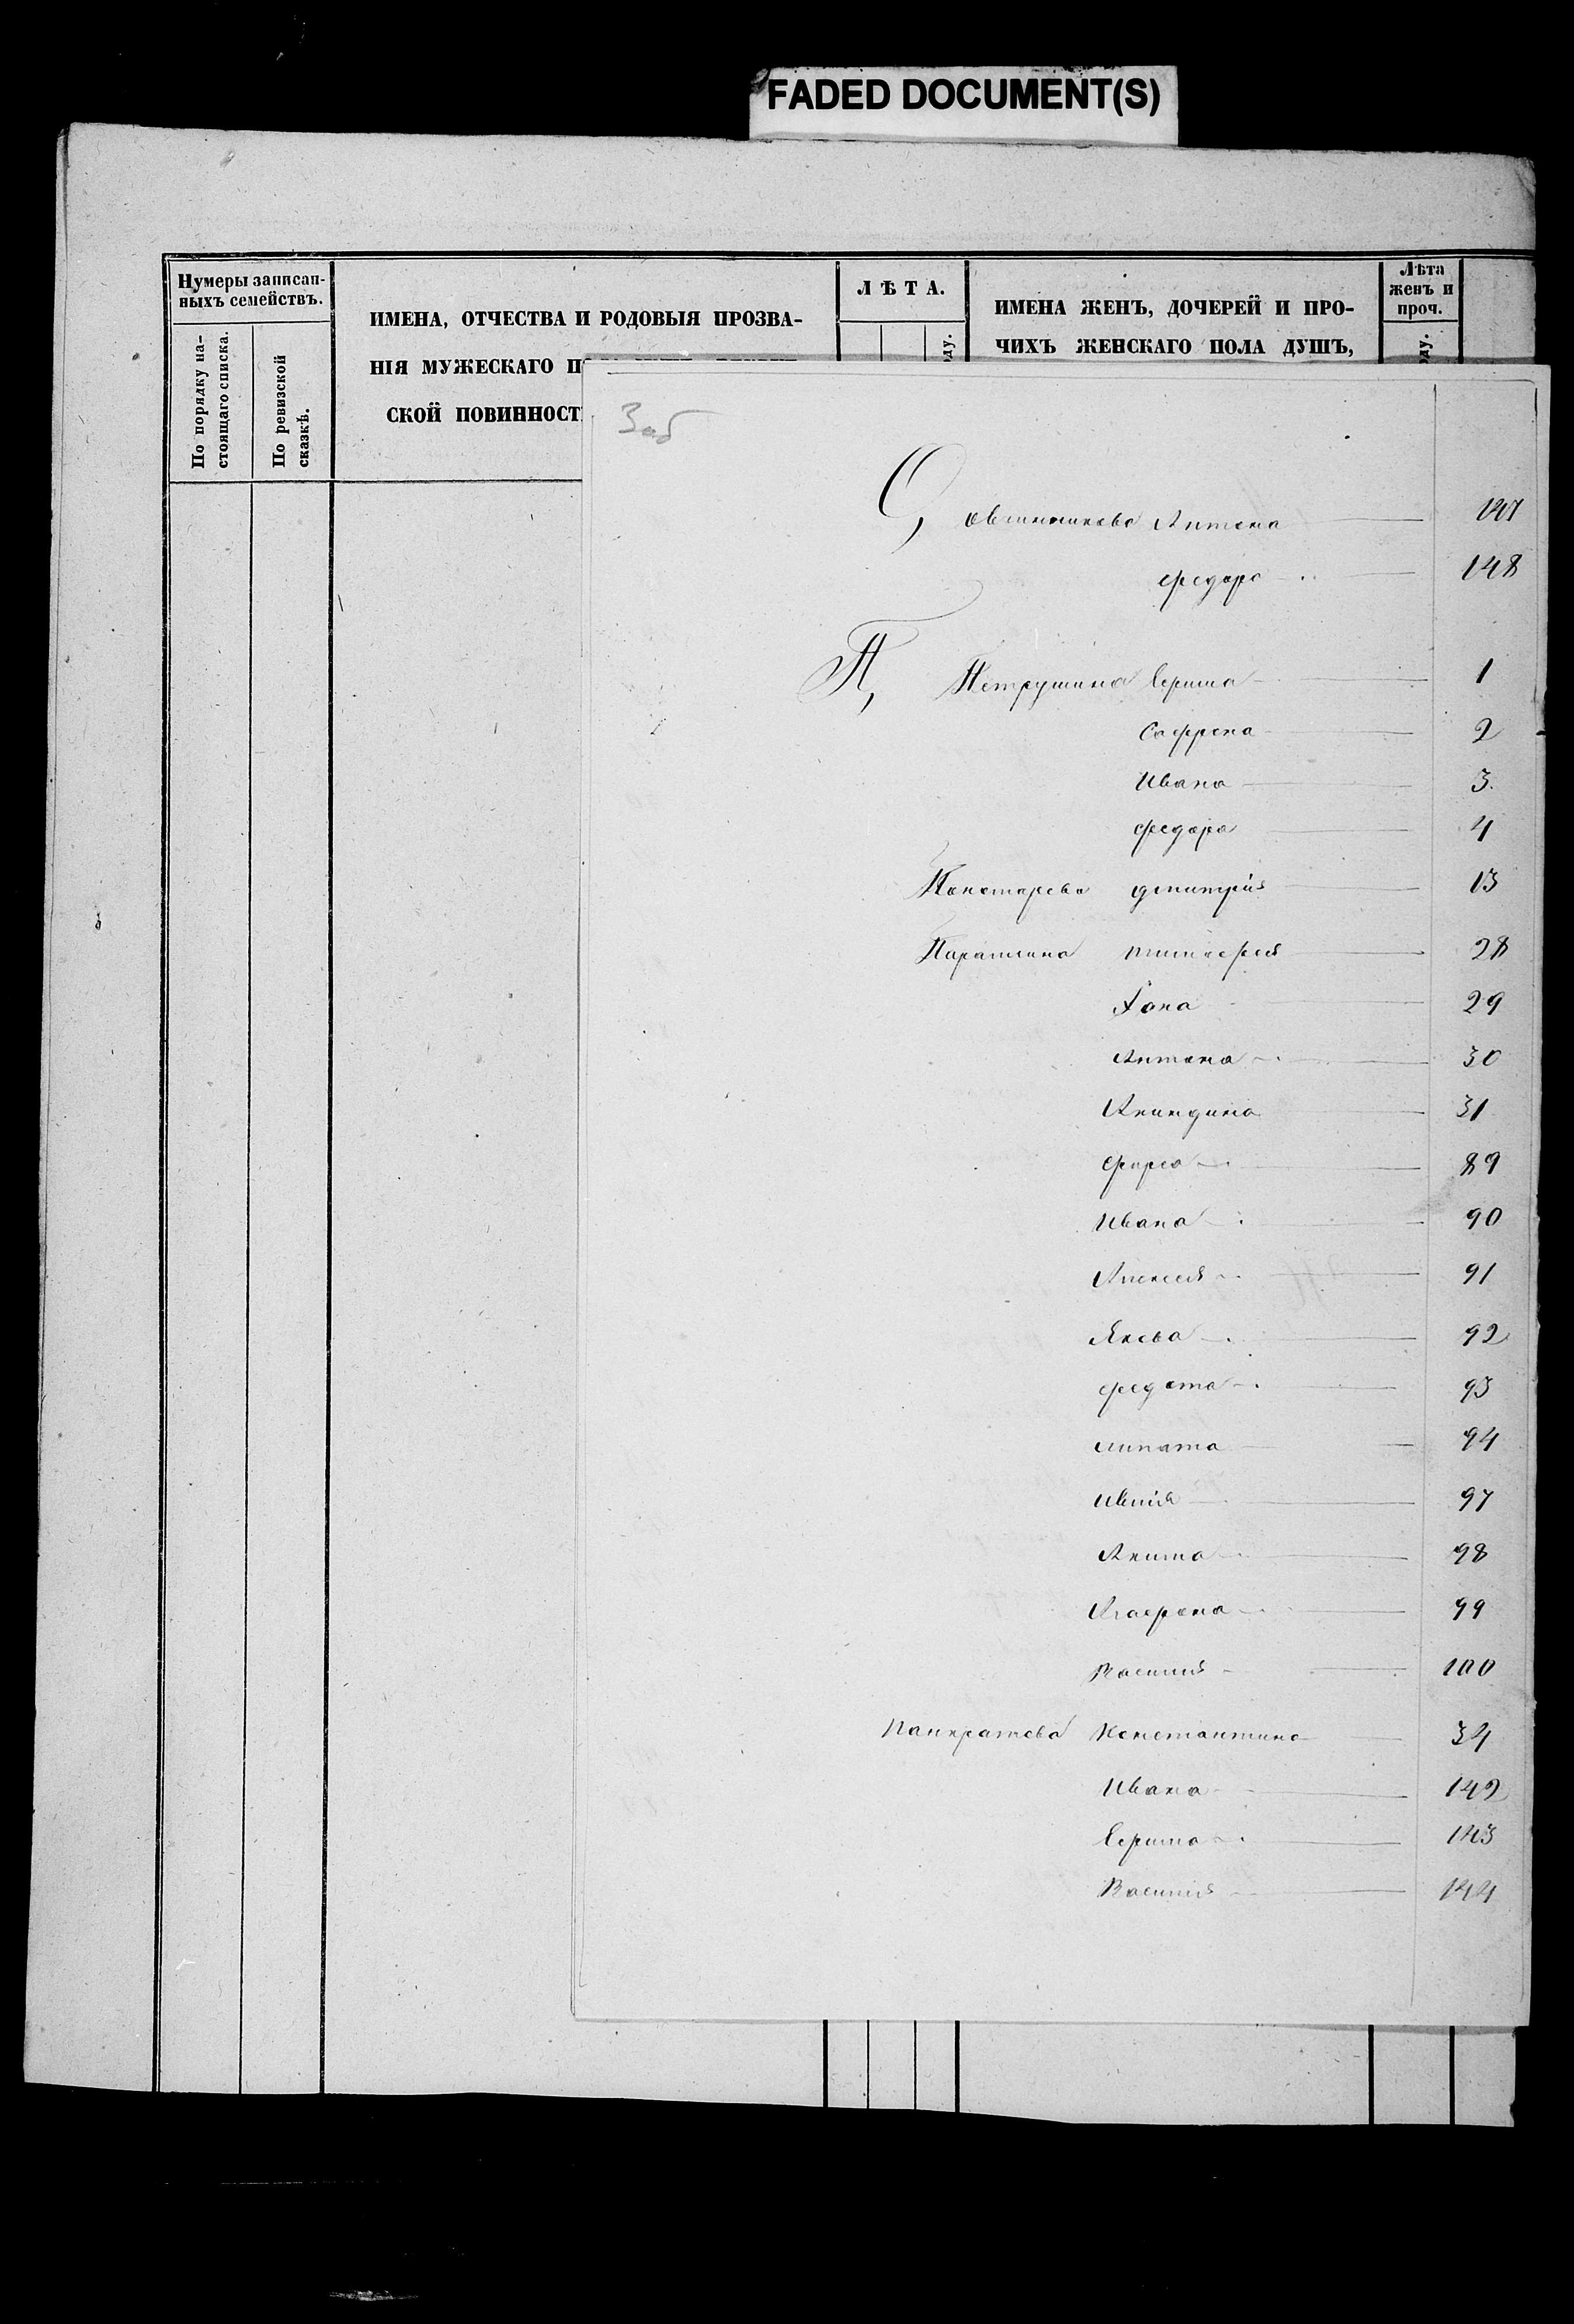 FADED DOCUMENT(S)
Нумеры записан-
ныхъ семействъ.
По порядку на-
стоящаго списка.
По ревизской
сказкѣ.
ИМЕНА, ОТЧЕСТВА И РОДОВЫЯ ПРОЗВА-
НІЯ МУЖЕСКАГО П
СКОЙ ПОВИННОСТ
ЛѢТА.
ду.
ИМЕНА ЖЕНЪ, ДОЧЕРЕЙ И ПРО-
ЧИХЪ ЖЕНСКАГО ПОЛА ДУШЪ,
Лѣта
женъ и
проч.
ду.
О, Овчинникова Антона 147
Федора 148
П, Петрушина Ефима 1
Софрона 2
Ивана 3
Федора 4
Дмитрія 13
Тимофея 28
29
Антона 30
Акиндина 31
Фирса 89
Ивана 90
Алексея 91
Якова 92
Федота 93
Липата 94
97
Акима 98
Агафона 99
Василия 100
Панкратова Константина 34
Ивана 142
Ефима 143
Василия 144